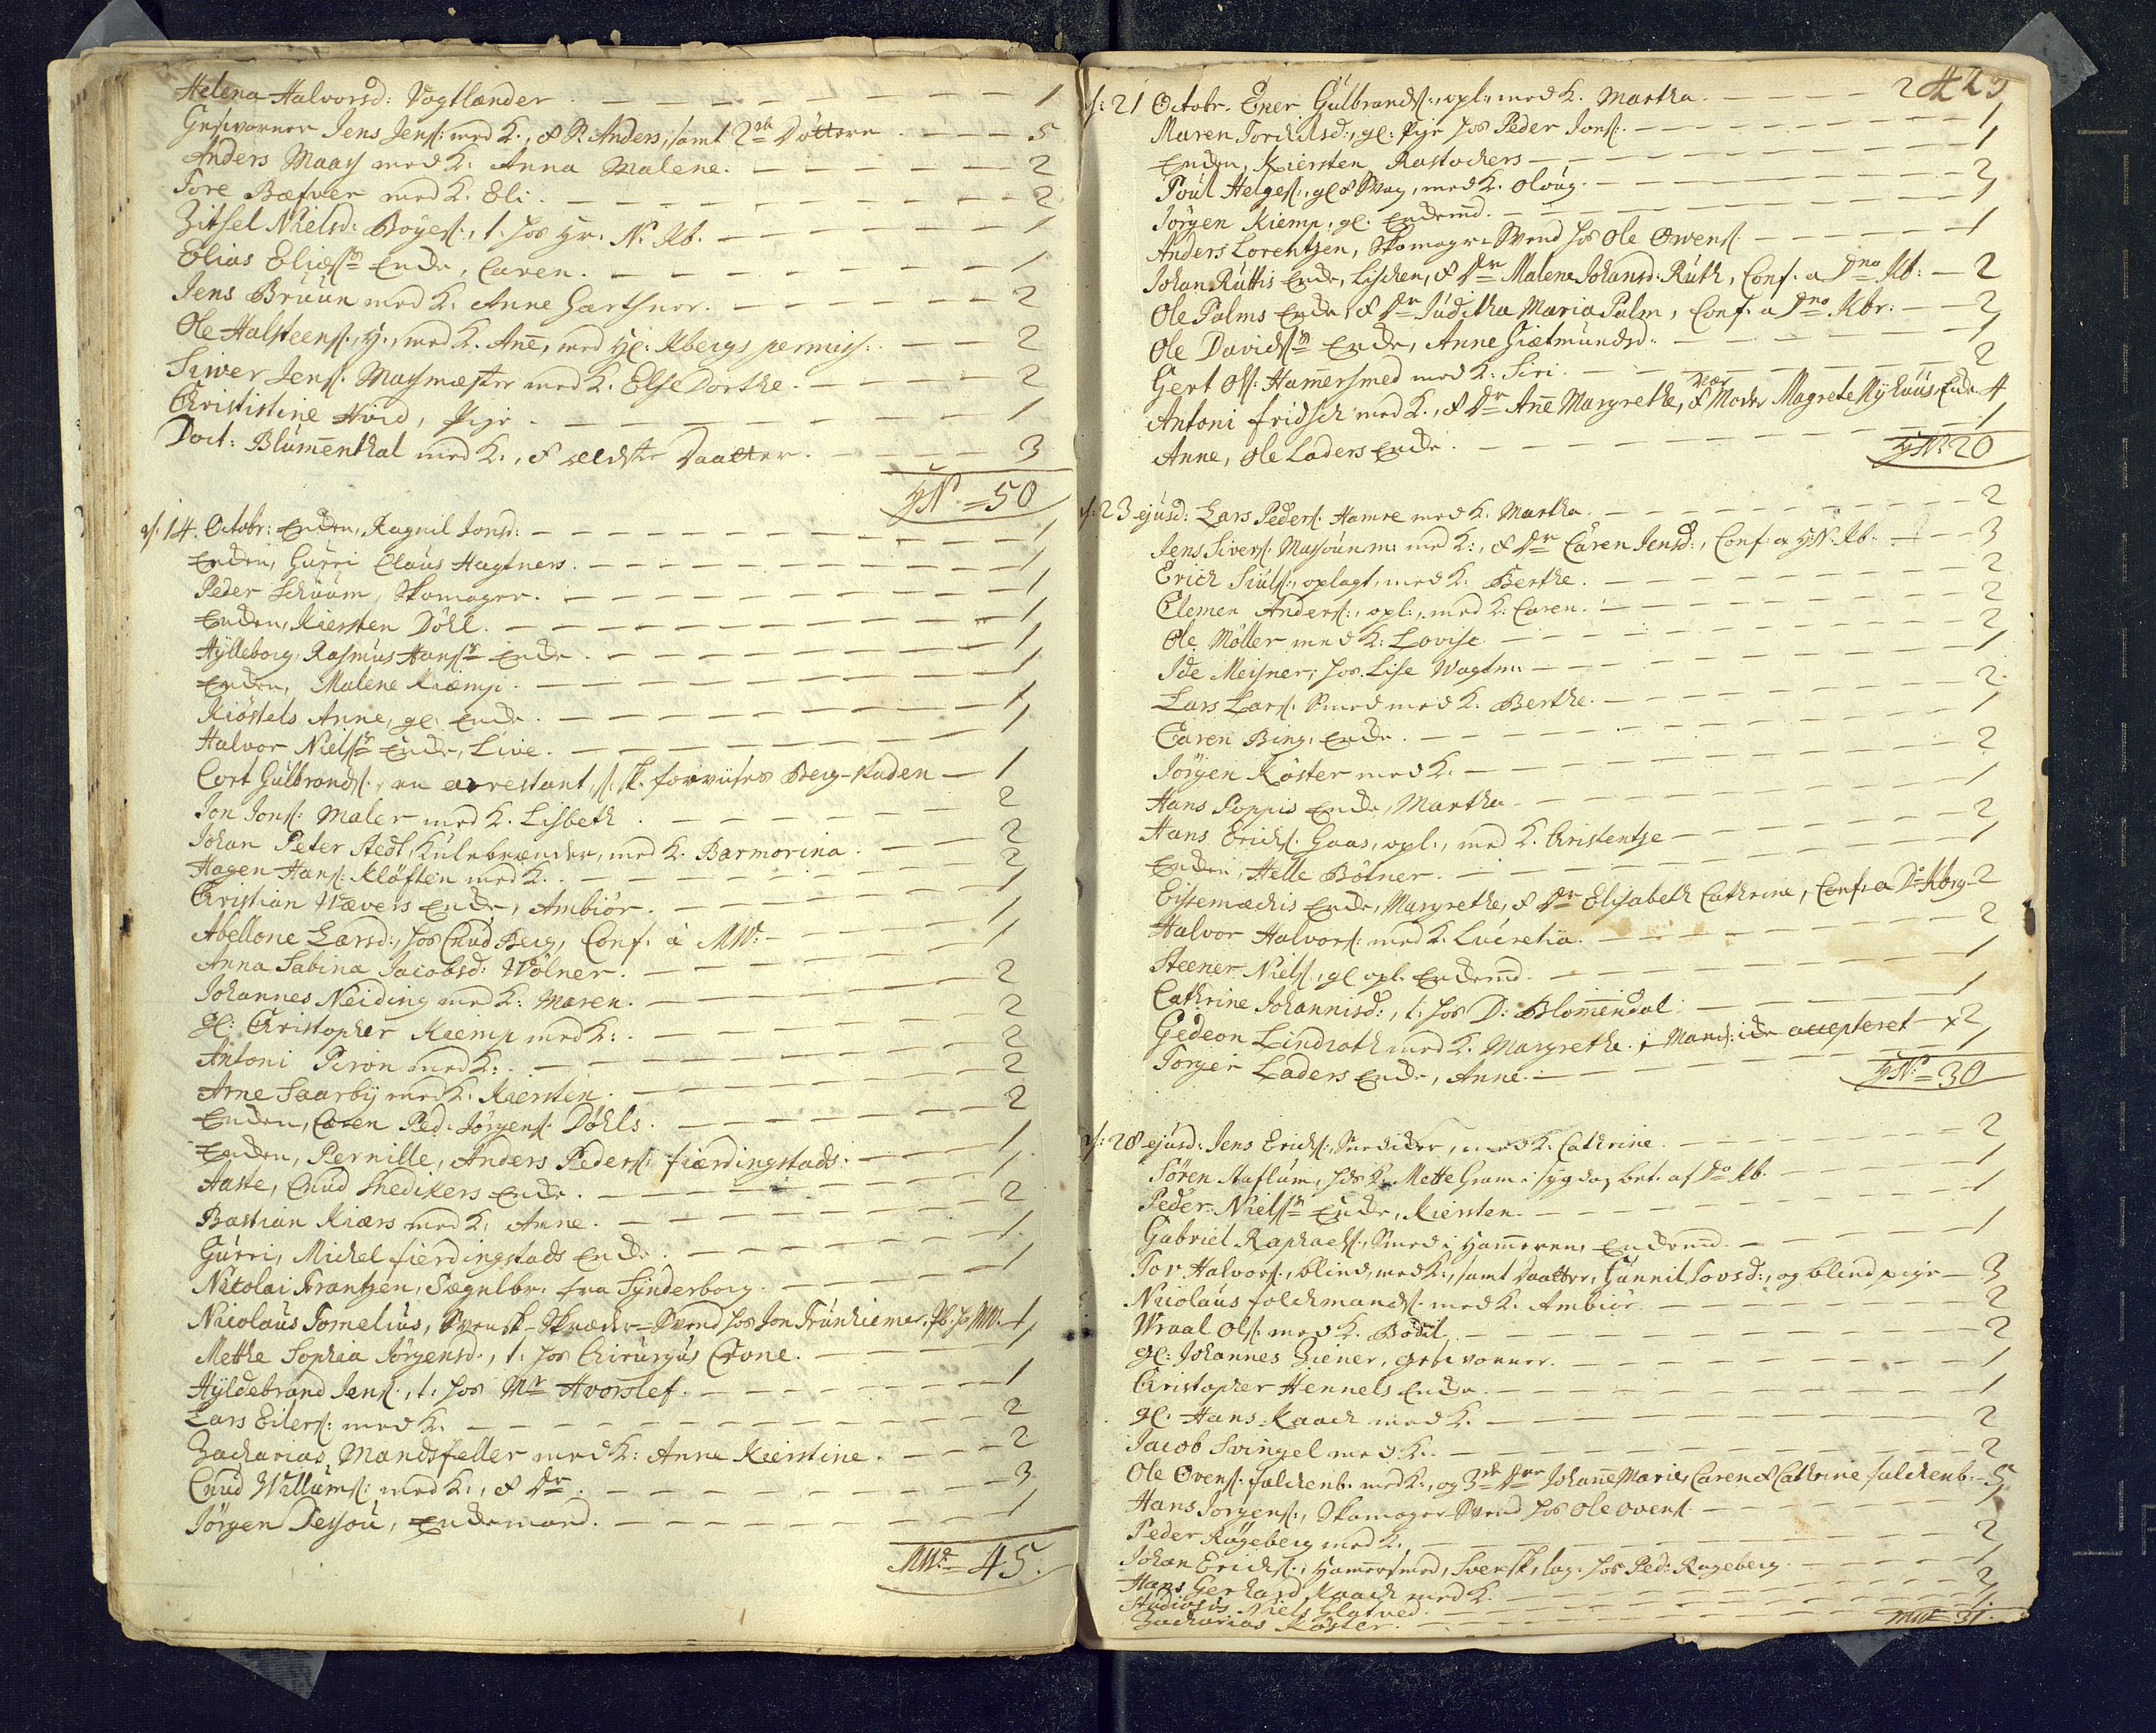 Helena Halvorsd: Vogtlænder - 1
Gesworner Jens Jens: med K., & S. Anders, samt 2de Döttre - 5
Anders Maas med K. Anna Malene. - 2
Tore Bæfver med K. Eli. - 2
Zitsel Nielsd: Böyes:, t. hos Hr. N. Kb. - 1
Elias Eliæsns Encke, Caren. - 1
Jens Brüün med K. Anne Gartsner. - 2
Ole Halsteens:, H., med K. Aññe, med Hr: Kbergs permiss: - 2
Siwer Jens: Masmæster med K. Else Dorthe. - 2
Christistine Hvid, Pige - 1
Doct: Blümenthal med K., & ældste Daatter. - 3
HN = 50
d: 14. Octobr: Encken, Ragnil Jonsd: - 1
Encken, Gurri Claus Hagtners. - 1
Peder Schüüm, Skomager. - 1
Encken, Kiersten Döhl. - 1
Hylleborg, Rasmus Hansns Encke. - 1
Encken, Malene Kiæmp. - 1
Kiöstels Anne, gl. Encke. - 1
Halvor Nielsns Encke, Live. - 1
Cort Gulbrands:, en arrestant, s. sk. forviises Berg-staden - 1
Jon Jons: Maler med K. Lisbeth. - 2
Johan Peter Stedt, Kulebrænder, med K. Barmorina. - 2
Hagen Hans: Kløften med K. - 2
Christian Wævers Encke, Ambiör. - 1
Abellone Larsd:, hos Cnud Berg, Conf. a MW: - 1
Anna Sabina Jacobsd: Wölner. - 1
Johannes Neiding med K: Maren. - 2
gl: Christopher Kiemp med K: - 2
Antoni Piron med K: - 2
Arne Saarby med K. Kiersten. - 2
Encken, Caren Ped: Jörgens: Döhls. - 2
Encken, Pernille, Anders Peders: fierdingstads. - 1
Aaste, Cnud Snedkers Encke. - 1
Bastian Kiærs med K. Anne. - 2
Gurri, Michel fierdingstads Encke. - 1
Nicolai Frantzen, Tægulbr. fra Synderborg. - 1
Nicolaus Tomelius, Svensk-Skræder-Svend hos Jon Trunhiemer, - 1
Mette Sophia Jörgensd., t. hos Chirurgus Crone. - 1
Hyldebrand Jens:, t. hos Mr Hvorslef. - 1
Lars Eilers: med K. - 2
Zacharias Mandsfeller med K: Anne Kierstine. - 2
Cnud Willums: med K., & Dr - 3
Jörgen Dessou, Enckemand. - 1
MW = 45.
423
d: 21 Octobr. Ener Gulbrands:, opl:, med K. Martha. - 2
Maren Torchilsd:, gl: Pige hos Peder Jons: - 1
Encken, Kiersten Rastochers - 1
Poul Helges:, gl & Svag, med K. Oloug. - 2
Jörgen Kiemp, gl. Enckemd. - 1
Anders Lorentzen, Skomager-Svend hos Ole Owens: - 1
Johan Ruttis Encke, Lischen, & Dr Malene Johansd: Ruth, Conf. a Dno Kb: - 2
Ole Palms Encke & Dr Juditha Maria Palm, Conf. a Dno Kbr. - 2
Ole Davidsns Encke, Anne Giætmundsd: - 1
Gert Ols: Hamersmed med K: Siri. - 2
Antoni fridsch med K., & Dr Aññe Margrethe, & Moder Magrete Nyhuus, Encke 4
Anne, Ole Laders Encke. - 1
HN = 20
d: 23 ejusd: Lars Peders: Hamre med K. Martha. - 2
Jens Sivers: Masounm: med K:, & Dr Caren Jensd:, Conf: a HN. Kb. - 3
Erich Siuls:, oplagt, med K. Berthe. - 2
Clemen Anders:, opl:, med K: Caren. - 2
Ole Möller med K: Lovise. - 2
Ide Meisner, hos Lise Wagtm: - 1
Lars Lars: Smed med K. Berthe. - 2
Caren Bing, Encke. - 1
Jörgen Köster med K. - 2
Hans Poppis Encke, Martha. - 1
Hans Erichs: Gaas, opl., med K. Christentze - 2
Encken, Helle Bötner. - 1
Eistemachis Encke, Margrethe, & Dr Elisabeth Cathrine, Conf. a Do Kbrg. - 2
Halvor Halvors: med K. Lucretia. - 2
Steener Niels:, gl opl. Enckemd. - 1
Cathrine Johannisd:, t: hos D: Blomendal. - 1
Gedeon Lindroth med K. Margrethe. accepteret - 2
Torger Laders Encke, Anne. - 1
HN = 30
d: 28 ejusd: Jens Erichs:, Snedicker, med K. Cathrine. - 2
Sören Staflum, hos K. Mette Gram i sygdom, bet. af Do Kb. - 1
Peder Nielsns Encke, Kiersten. - 1
Gabriel Raphaels:, Smed i Hammeren, Enckemd. - 1
Tor Halvors:, blind, med K., samt Daatter, Gunnil Torsd:, og blind pige - 3
Nicolaus folchmands: med K. Ambiör. - 2
Wraal Ols: med K. Bodil. - 2
gl: Johannes Ziener, gesworner. - 1
Christopher Hennels Encke. - 1
gl: Hans Kaach med K. - 2
Jacob Svingel med K. - 2
Ole Ovens: falchenb. med K., og 3de Dre Johañe Marie, Caren & Cathrine falchenb: - 5
Hans Jörgens:, Skomager Svend hos Ole Ovens: - 1
Peder Rögeberg med K. - 2
Johan Erichs:, Hamersmed, Svensk, log. hos Ped: Rageberg - 1
Hans Gerhard Kaach med K. - 2
Studiosus Niels Glatved. - 1
Zacharias Köster. -
MW = 31.